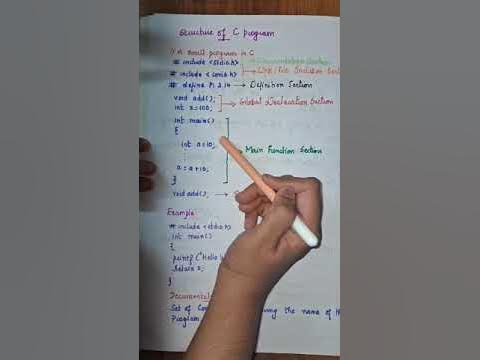 Structure of C program
// A small program in C → Documentation Section
# include <stdio.h>
# include <conio.h> → Link/File Inclusion Section
# define PI 3.14 → Definition Section
void add();
int x=100; → Global Declaration Section
int main()
{
int a=10;
→ Main Function Section
a = a+10;
}
void add(); →
Example
# include <stdio.h>
int main()
{
printf ("Hello
return 0;
}
Set of the name of
Program